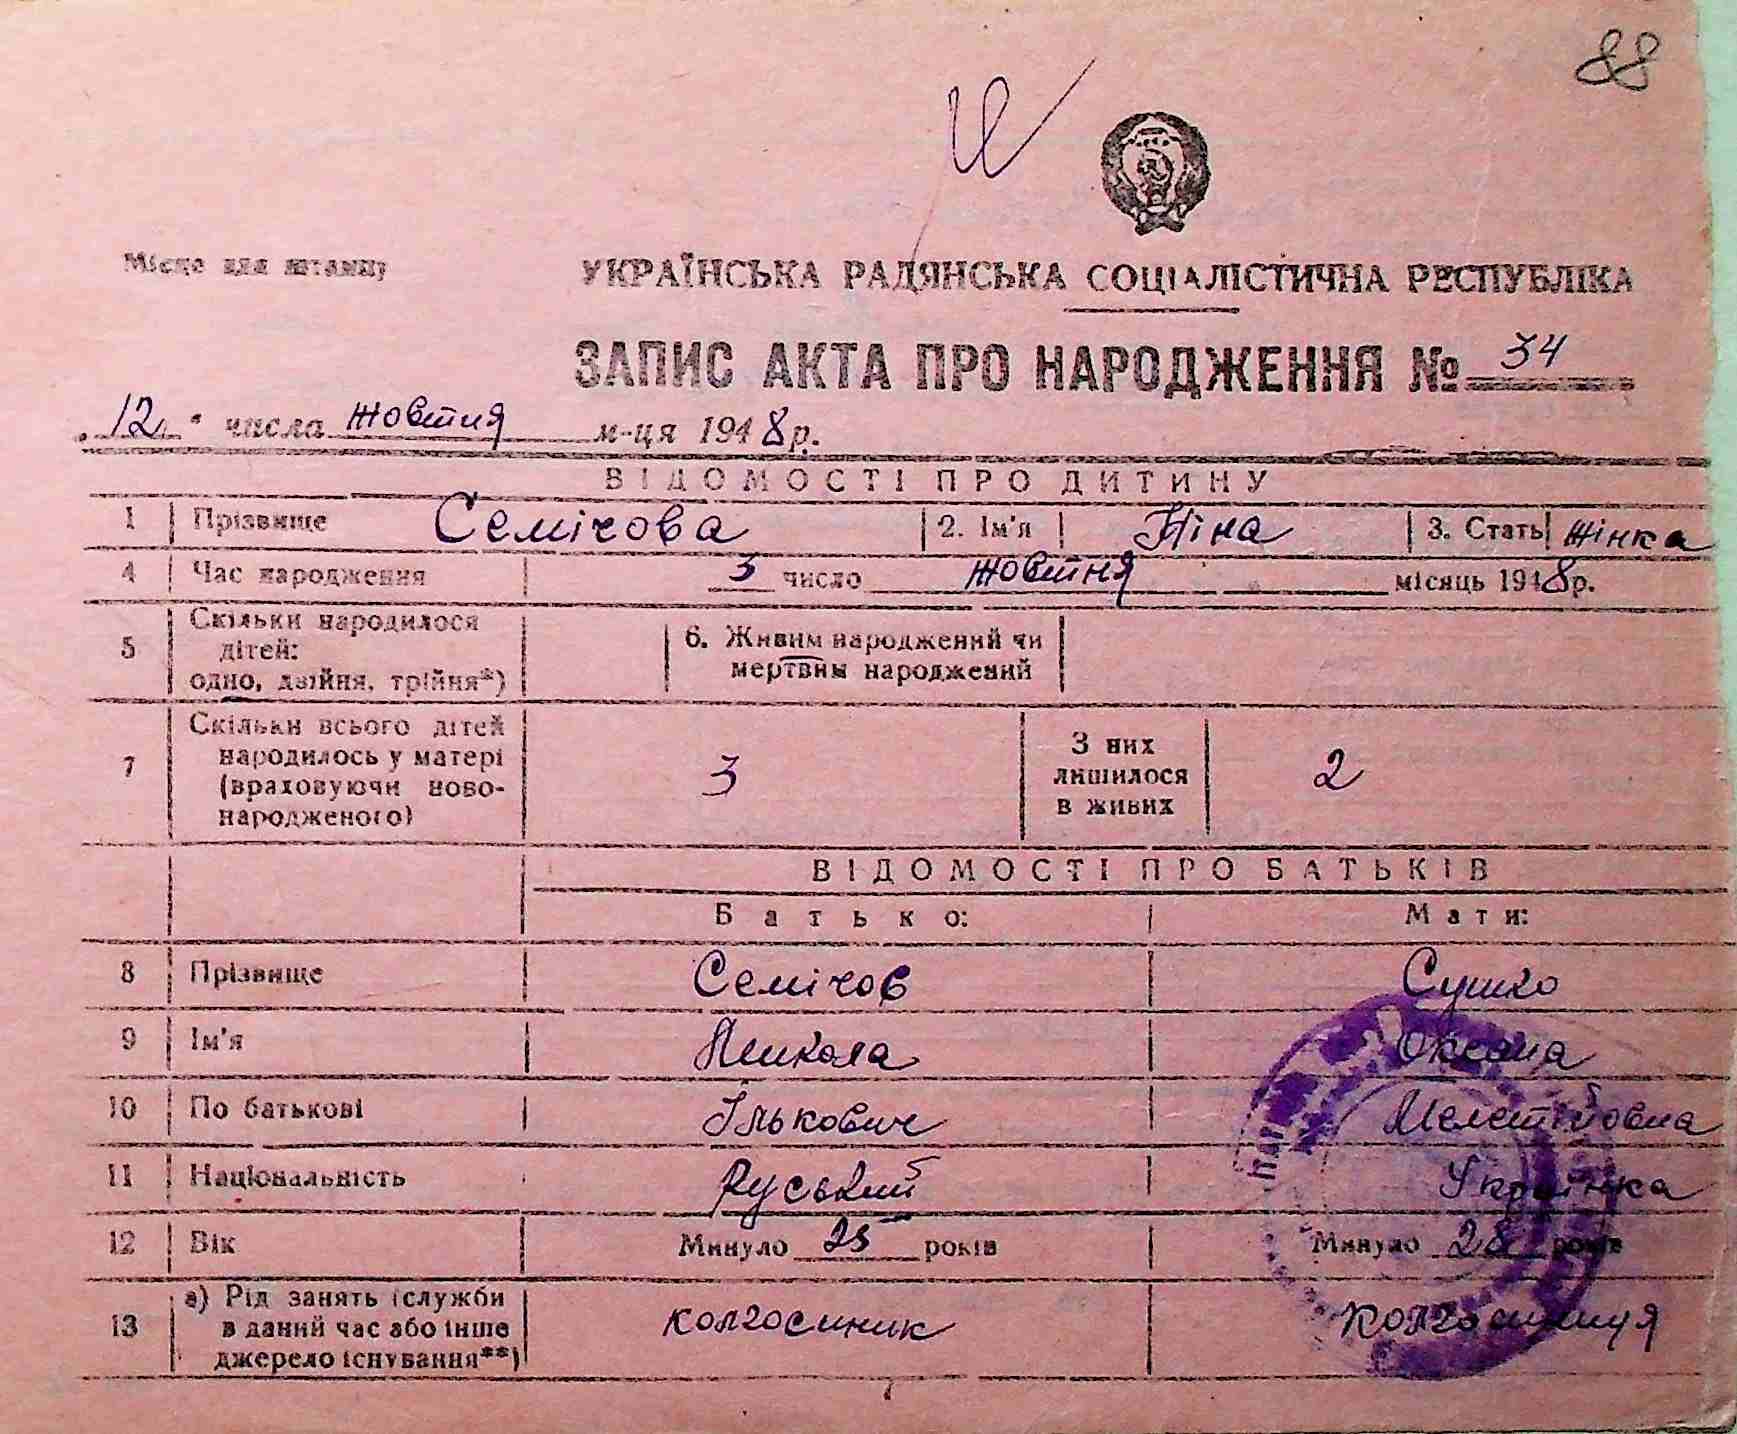 88
Місце для штампу
УКРАЇНСЬКА РАДЯНСЬКА СОЦІАЛІСТИЧНА РЕСПУБЛІКА
ЗАПИС АКТА ПРО НАРОДЖЕННЯ № 34
„12" числа жовтня м-ця 1948 р.
ВІДОМОСТІ ПРО ДИТИНУ
1 Прізвище Семічова 2. Ім'я Ніна 3. Стать жінка
4 Час народження 3 число жовтня місяць 1948 р.
5 Скільки народилося дітей: одно, двійня, трійня*) 6. Живим народжений чи мертвим народжений
7 Скільки всього дітей народилось у матері (враховуючи ново-народженого) 3 З них лишилося в живих 2
ВІДОМОСТІ ПРО БАТЬКІВ
Батько: Мати:
8 Прізвище Семічов Сушко
9 Ім'я Микола Оксана
10 По батькові Ількович Мелетійовна
11 Національність Руський Українка
12 Вік Минуло 25 років Минуло 28 років
13 а) Рід занять (служби в даний час або інше джерело існування**) колгоспник колгоспниця